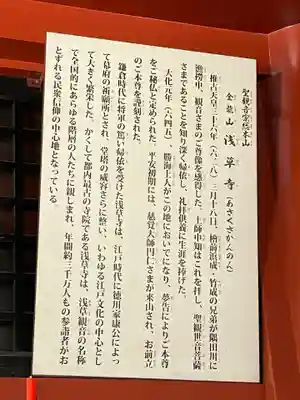 聖観音宗総本山
金龍山 浅草寺（あさくさかんのん）
推古天皇三十六年（六二八）三月十八日、檜前浜成・竹成の兄弟が隅田川に
漁撈中、観音さまのご尊像を感得した。土師中知はこれを拝し、聖観世音菩薩
さまであることを知り深く帰依し、礼拝供養に生涯を捧げた。
大化元年（六四五）、勝海上人がこの地においでになり、夢告によりご本尊
をご秘仏と定められた。平安初期には、慈覚大師円仁さまが来山され、お前立
のご本尊を謹刻された。
鎌倉時代に将軍の篤い帰依を受けた浅草寺は、江戸時代に徳川家康公によっ
て幕府の祈願所とされ、堂塔の威容さらに整い、いわゆる江戸文化の中心とし
て大きく繁栄した。かくして都内最古の寺院である浅草寺は、浅草観音の名称
で全国的にあらゆる階層の人たちに親しまれ、年間約三千万人もの参詣者がお
とずれる民衆信仰の中心地となっている。